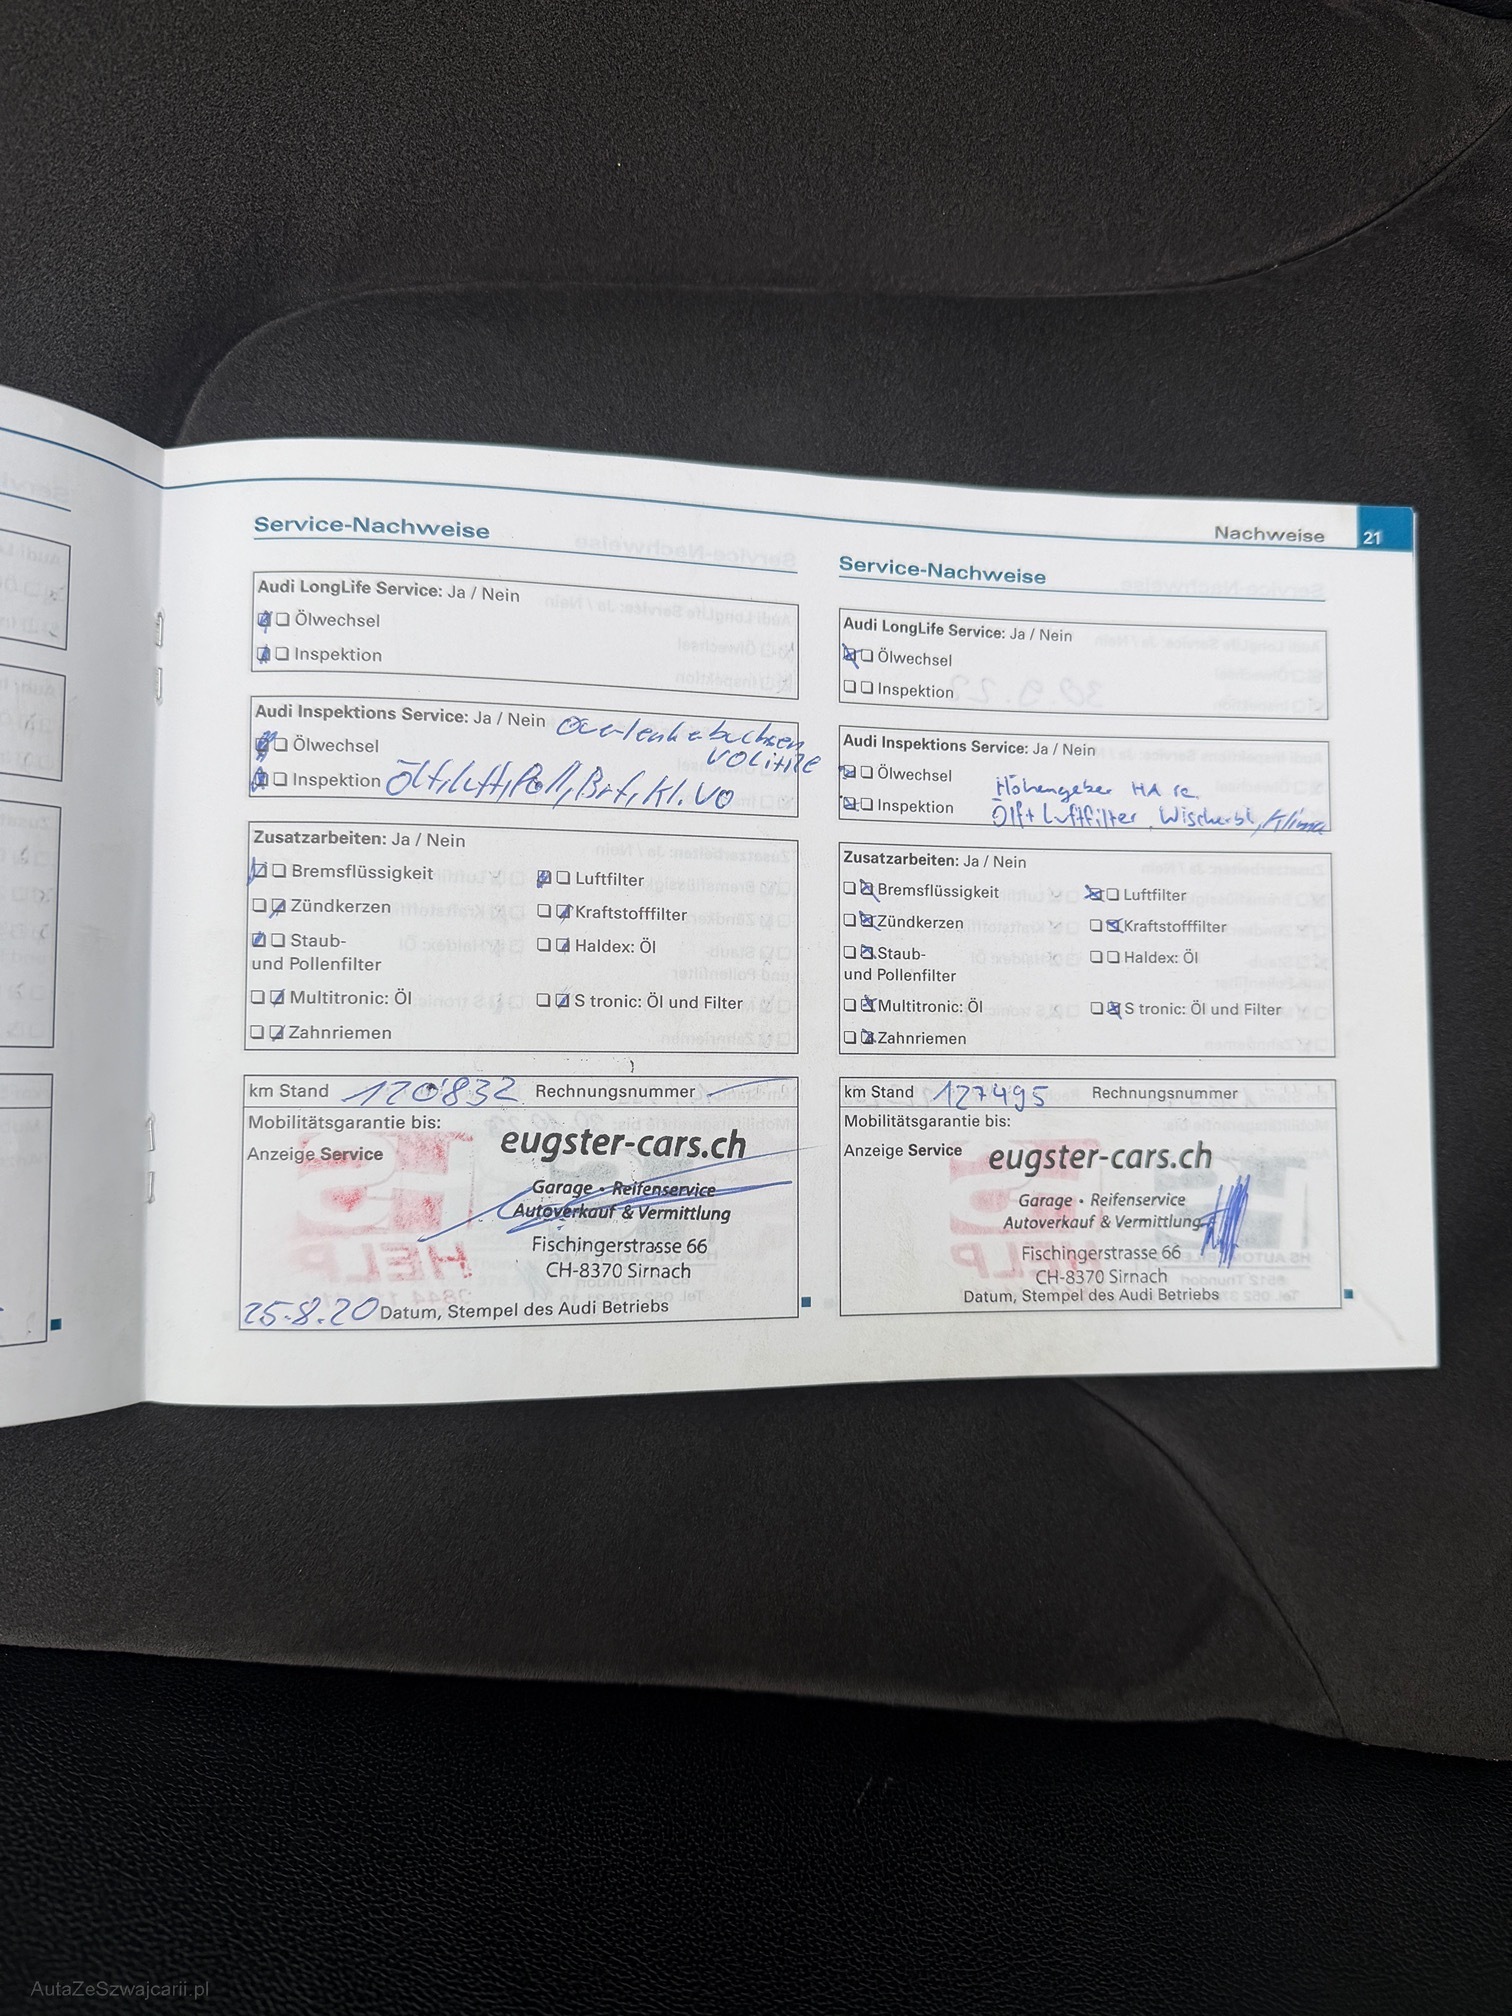 Nachweise 21
Service-Nachweise
Audi LongLife Service: Ja / Nein
Ölwechsel
Inspektion
Audi Inspektions Service: Ja / Nein
Ölwechsel
Inspektion Ölf, Luft, Poll, Brf, Kl. VO
Zusatzarbeiten: Ja / Nein
Bremsflüssigkeit Luftfilter
Zündkerzen Kraftstofffilter
Staub- Haldex: Öl
und Pollenfilter
Multitronic: Öl S tronic: Öl und Filter
Zahnriemen
km Stand 120'832 Rechnungsnummer
Mobilitätsgarantie bis:
Anzeige Service
eugster-cars.ch
Garage • Reifenservice
Autoverkauf & Vermittlung
Fischingerstrasse 66
CH-8370 Sirnach
25.8.20 Datum, Stempel des Audi Betriebs
Service-Nachweise
Audi LongLife Service: Ja / Nein
Ölwechsel
Inspektion
Audi Inspektions Service: Ja / Nein
Ölwechsel
Höhengeber HA
Inspektion
Luftfilter, Wischerbl, Klima
Zusatzarbeiten: Ja / Nein
Bremsflüssigkeit Luftfilter
Zündkerzen Kraftstofffilter
Staub- Haldex: Öl
und Pollenfilter
Multitronic: Öl S tronic: Öl und Filter
Zahnriemen
km Stand 127495 Rechnungsnummer
Mobilitätsgarantie bis:
Anzeige Service
eugster-cars.ch
Garage • Reifenservice
Autoverkauf & Vermittlung
Fischingerstrasse 66
CH-8370 Sirnach
Datum, Stempel des Audi Betriebs
AutaZeSzwajcarii.pl